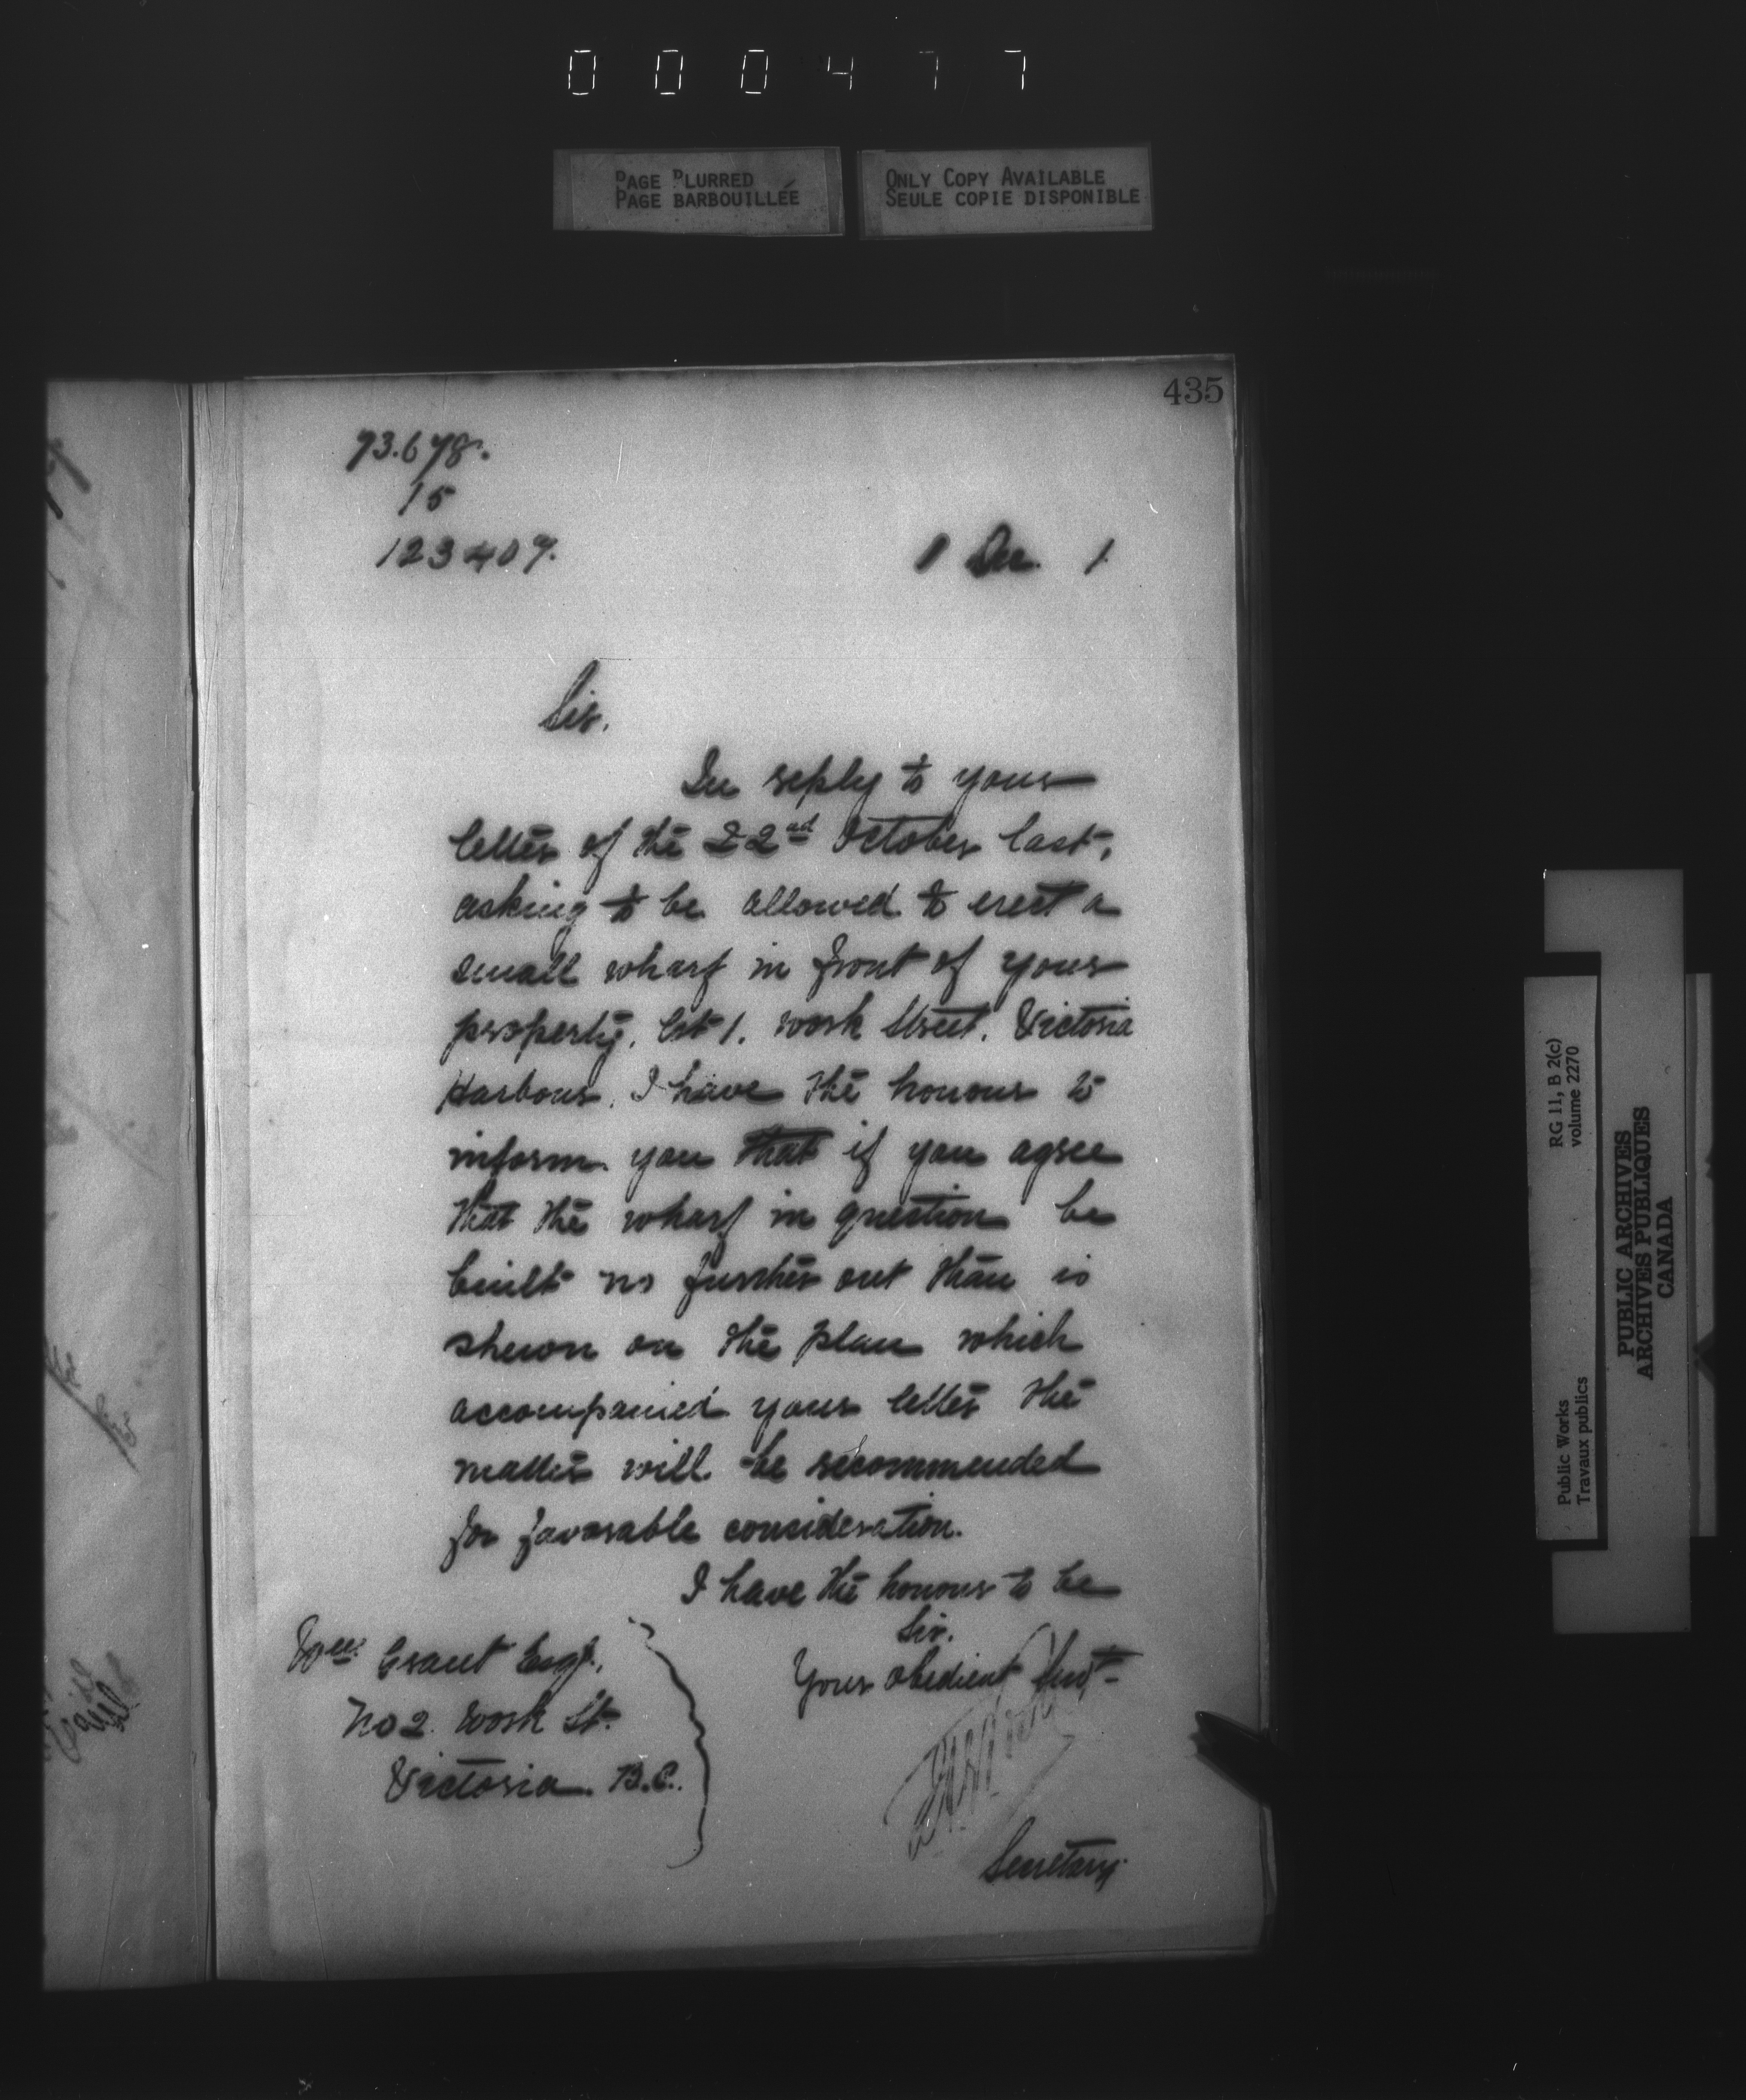 000477
PAGE BLURRED
PAGE BARBOUILLÉE
ONLY COPY AVAILABLE
SEULE COPIE DISPONIBLE
435
73.678.
15
123407.
1 Dec. 1
Sir.
In reply to your
letter of the 22nd October last,
asking to be allowed to erect a
small wharf in front of your
property, lot 1. Work Street. Victoria
Harbour, I have the honour to
inform you that if you agree
that the wharf in question be
built no further out than is
shewn on the plan which
accompanied your letter the
matter will be recommended
for favorable consideration.
I have the honour to be
Sir.
Your obedient Servt
Secretary.
Wm. Grant Esq.
No 2. Work St.
Victoria. B.C.
RG 11, B 2(c)
volume 2270
Public Works
Travaux publics
PUBLIC ARCHIVES
ARCHIVES PUBLIQUES
CANADA